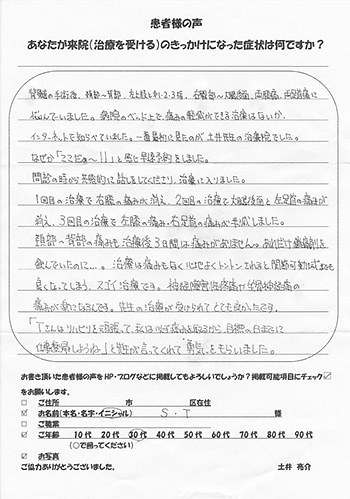 患者様の声
あなたが来院(治療を受ける)のきっかけになった症状は何ですか?
の手術後、頚部～背部、左上肢と手1・2・3指、右臀部～大腿後面、両膝痛、両足首痛に
悩んでいました。病院のベッド上で、痛みの軽減ができる治療はないか、
インターネットで知らべていました。一番最初に見たのが土井先生の治療院でした。
なぜか「ここだぁ～!!」と感じ早速予約をしました。
問診の時から気さくに話しをしてくださり、治療に入りました。
1回目の治療で右膝の痛みが消え、2回目の治療で大腿後面と左足首の痛みが
消え、3回目の治療で左膝の痛み・右足首の痛みが半減しました。
頚部～背部の痛みも治療後3日間は痛みがありません。あれだけ鎮痛剤を
飲んでいたのに…。治療は痛みもなく心地よくトントンされると関節可動域までも
良くなってしまう、スゴイ治療です。神経障害性疼痛や坐骨神経痛の
痛みが楽になるんです。先生の治療が受けられてとても良かったです。
「Tさんはリハビリを頑張って、私は必ず痛みを取るから、目標の日までに
仕事復帰しようね」と先生が言ってくれて"勇気"をもらいました。
お書き頂いた患者様の声をHP・ブログなどに掲載してもよろしいでしょうか?掲載可能項目にチェック☑
をお願いします。
□ ご住所 市 区在住
☑ お名前(本名・名字・イニシャル) S・T 様
□ ご職業
☑ ご年齢 10代 20代 30代 40代 50代 60代 70代 80代 90代
(○で囲ってください)
☑ お写真
ご協力ありがとうございました。 土井 亮介